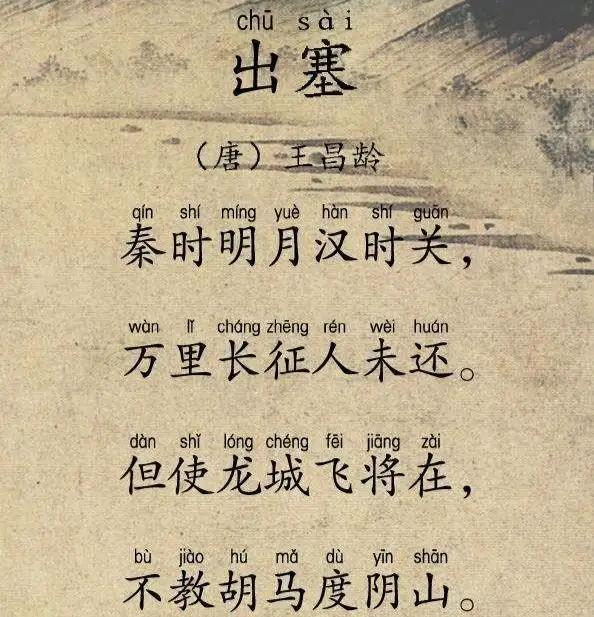 chū sài
出塞
（唐）王昌龄
qín shí míng yuè hàn shí guān
秦时明月汉时关，
wàn lǐ cháng zhēng rén wèi huán
万里长征人未还。
dàn shǐ lóng chéng fēi jiāng zài
但使龙城飞将在，
bù jiào hú mǎ dù yīn shān
不教胡马度阴山。